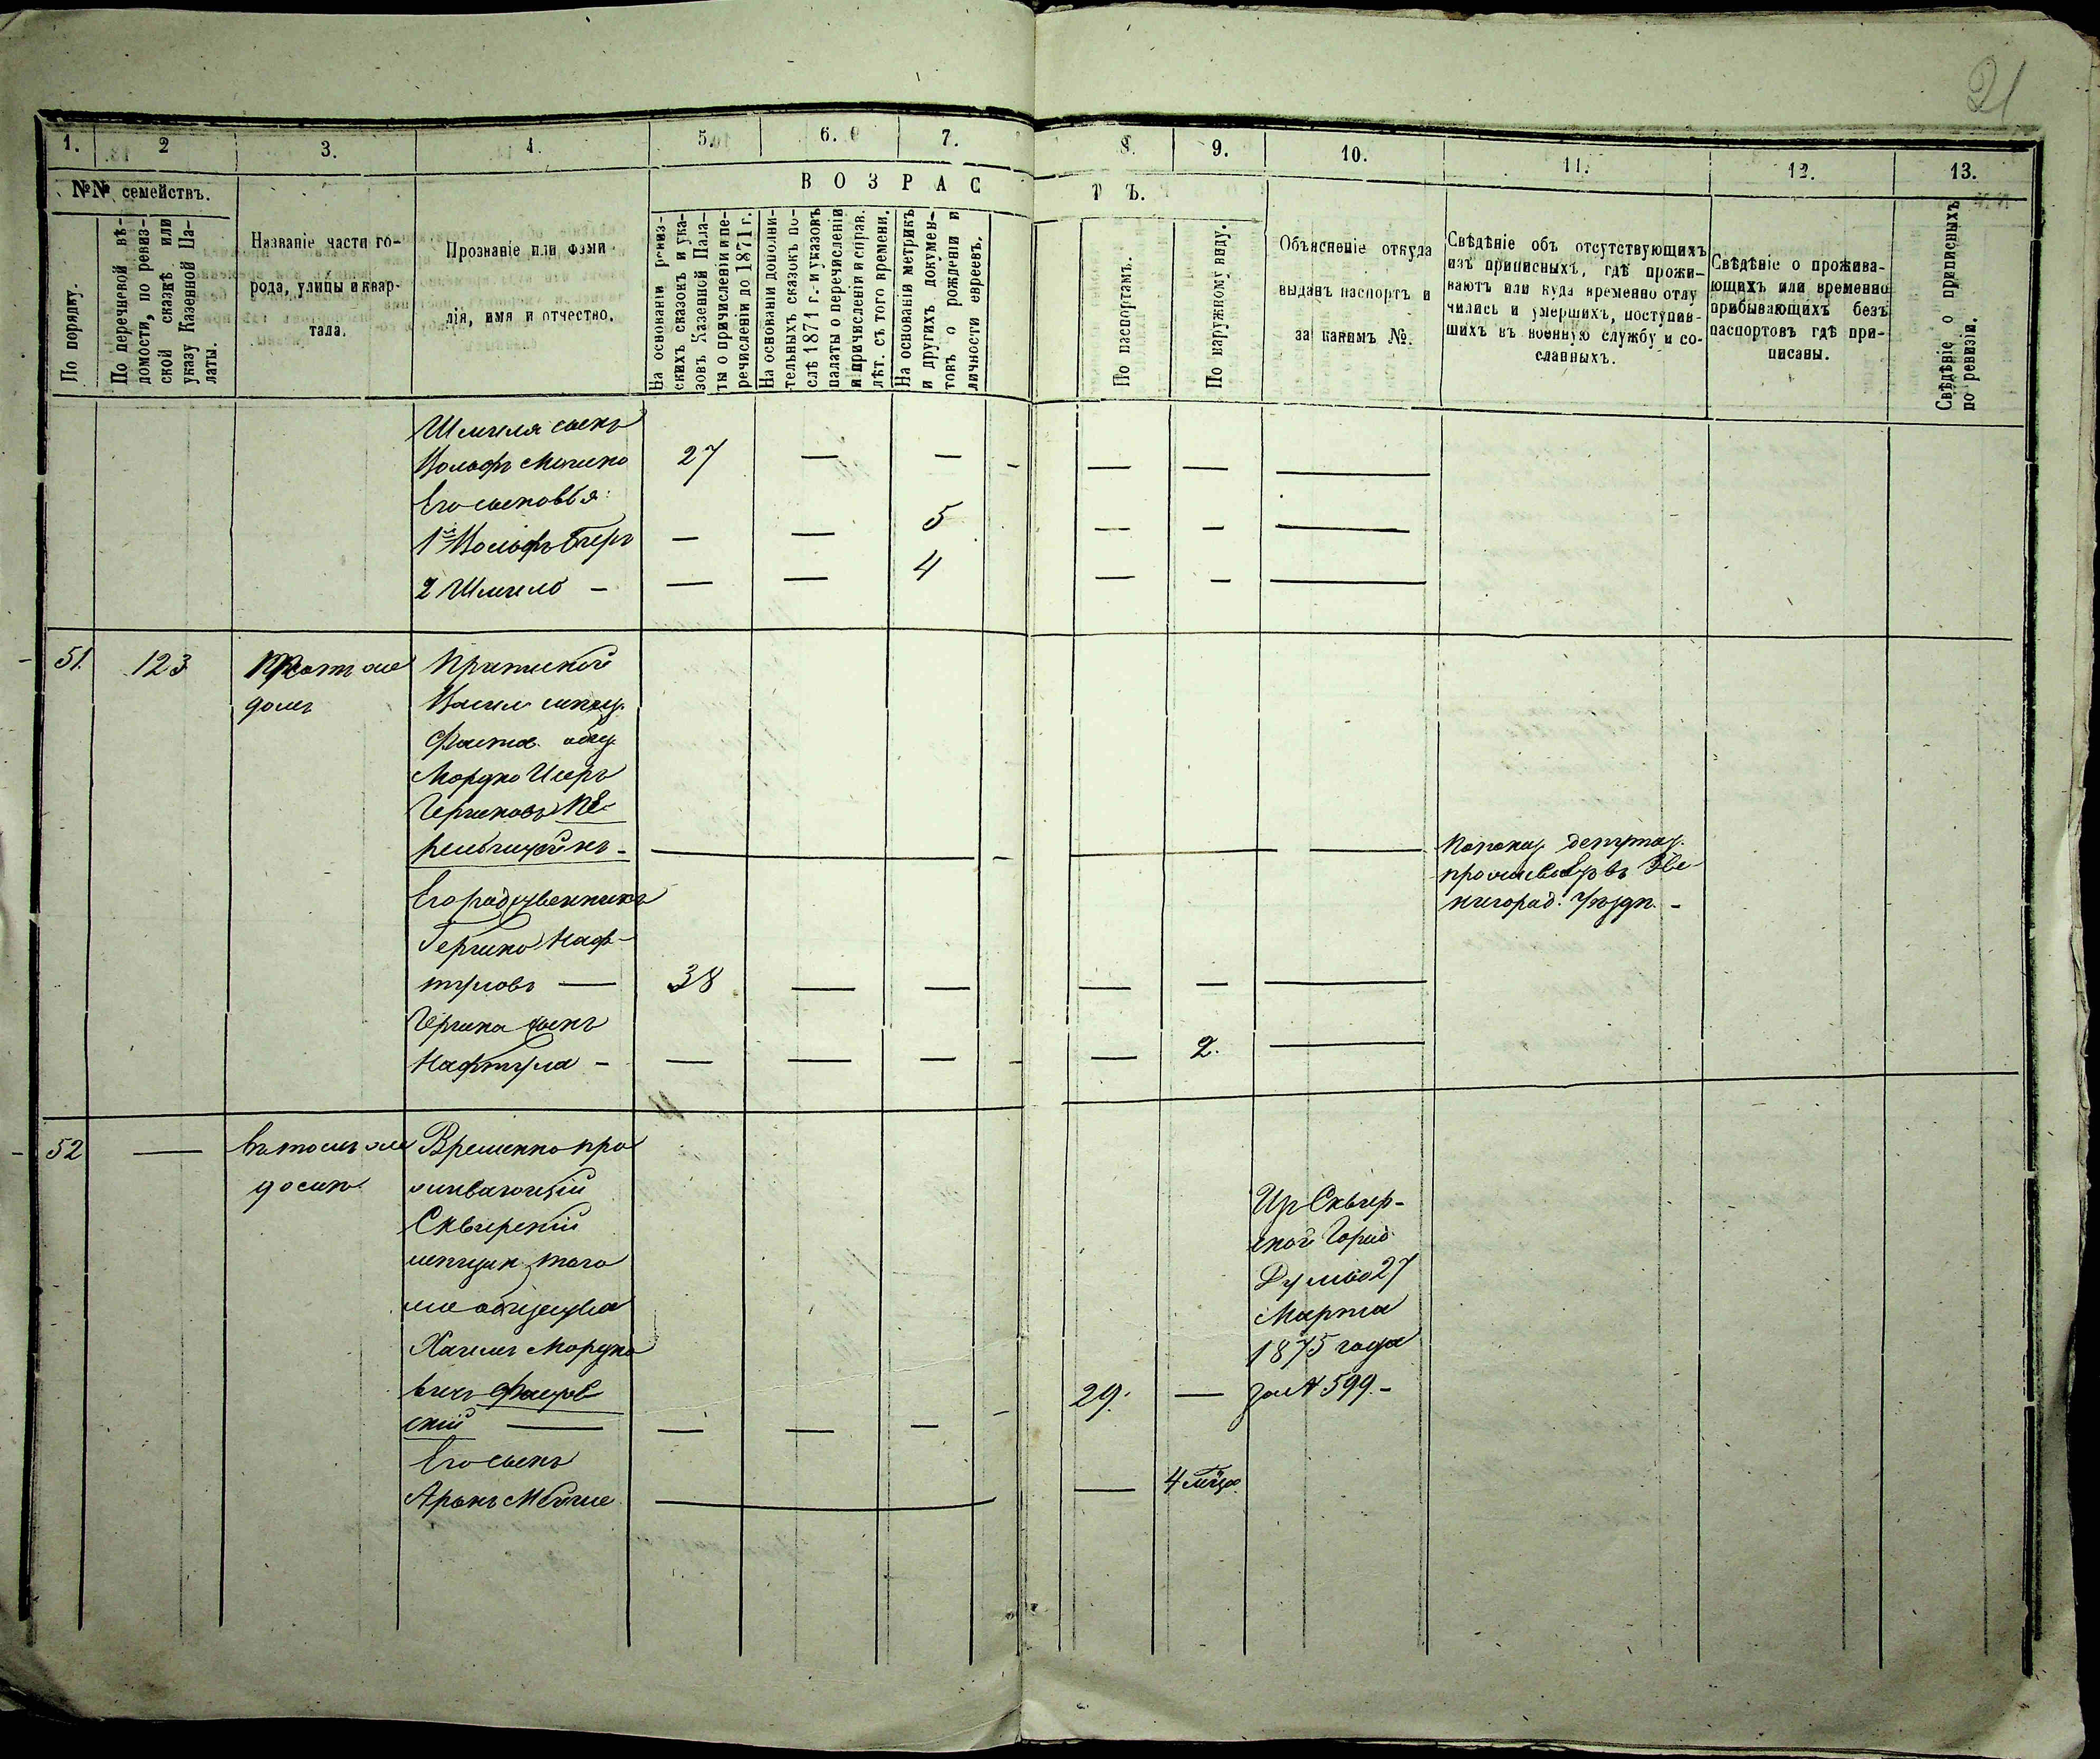 21
1. 2 3. 4. 5. 6. 7. 8. 9. 10. 11. 12. 13.
№№ семействъ.
По порядку.
По перечневой вѣ-
домости, по ревиз-
ской сказкѣ или
указу Казенной Па-
латы.
Названіе части го-
рода, улицы и квар-
тала.
Прозваніе или фами
лія, имя и отчество.
ВОЗРАСТЪ.
На основаніи ревиз-
скихъ сказокъ и ука-
зовъ Казенной Пала-
ты о причисленіи и пе-
речисленіи до 1871 г.
На основаніи дополни-
тельныхъ сказокъ по-
слѣ 1871 г. и указовъ
палаты о перечисленіи
и причисленіи и справ.
лѣт. съ того времени.
На основаніи метрикъ
и другихъ докумен-
товъ о рожденіи и
личности евреевъ.
По паспортамъ.
По наружному виду.
Объясненіе откуда
выданъ паспортъ и
за какимъ №.
Свѣдѣніе объ отсутствующихъ
изъ приписныхъ, гдѣ прожи-
ваютъ или куда временно отлу
чились и умершихъ, поступив-
шихъ въ военную службу и со-
сланныхъ.
Свѣдѣніе о прожива-
ющихъ или временно
прибывающихъ безъ
паспортовъ гдѣ при-
писаны.
Свѣдѣніе о приписныхъ
по ревизіи.
Шмиля сынъ
Вольфъ Мошко 27 — — — — —
Его сыновья:
1й Вольфъ Беръ — — 5 — — —
2 Шмило — — — 4 — — —
51. 123 Тотъ же
домъ
Мордко Исеръ
Гершковъ Пе-
рельцвейкъ —
Его родственникъ
Гершко Наф-
туловъ — 38 — — — — —
Гершка сынъ
Нафтула — — — — — 2. —
проживаетъ въ Зве-
нигород. Уѣздѣ. —
52 — Въ томъ же
домѣ
Временно про
живающій
Сквирскій
мѣщан. того
же общества
Хаимъ Мордко
вичъ Фастов
скій — — — — 29. —
Его сынъ
Аронъ Мойше — — 4 мѣс.
Из Сквир-
ской Город.
Думы 27
Марта
1875 года
за № 599. —